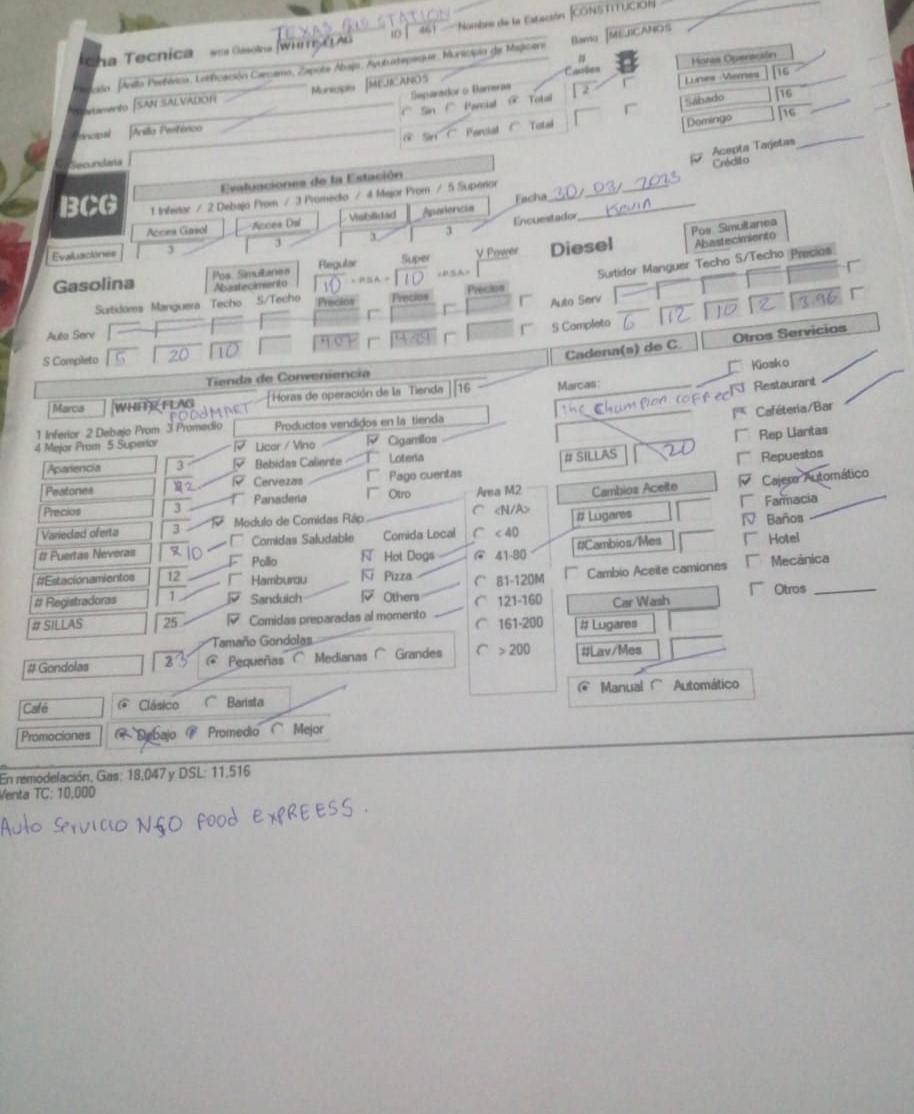 TEXAS GAS STATION
cha Tecnica arca Gasolina WHITE FLAG ID 461 Nombre de la Estación CONSTITUCION
Anillo Periférico, Lotificación Carcamo, Zapote Abajo, Ayutuxtepeque, Municipio de Mejicano Barrio MEJICANOS
SAN SALVADOR Municipio MEJICANOS Separador o Barreras # Carriles Horas Operación
Sin Parcial Total 2 Lunes-Viernes 16
Principal Anillo Periférico Sin Parcial Total Sábado 16
Domingo 16
Secundaria Acepta Tarjetas Crédito
BCG
Evaluaciones de la Estación
1 Inferior / 2 Debajo Prom / 3 Promedio / 4 Mejor Prom / 5 Superior Fecha 30/03/2023
Acces Gasol Acces Dsl Visibilidad Apariencia Encuestador Kevin
Evaluaciones 3 3 3 3
Gasolina Pos. Simultanea Abastecimiento Regular Super V Power Diesel Pos. Simultanea Abastecimiento
10 +P.S.A.= 10 +P.S.A.=
Surtidores Manguera Techo S/Techo Precios Precios Precios Surtidor Manguer Techo S/Techo Precios
Auto Serv Auto Serv
S Completo 5 20 10 S Completo 6 12 10 2 3.96
Tienda de Conveniencia Cadena(s) de C. Otros Servicios
Marca WHITE FLAG FOODMART Horas de operación de la Tienda 16 Marcas: Kiosko
the champion coffee Restaurant
1 Inferior 2 Debajo Prom 3 Promedio Productos vendidos en la tienda Caféteria/Bar
4 Mejor Prom 5 Superior Licor / Vino Cigarrillos Rep Llantas
Apariencia 3 Bebidas Caliente Loteria # SILLAS 20 Repuestos
Peatones 2 Cervezas Pago cuentas Cajero Automático
Precios 3 Panaderia Otro Area M2 Cambios Aceite Farmacia
Variedad oferta 3 Modulo de Comidas Ráp <N/A> # Lugares Baños
# Puertas Neveras 10 Comidas Saludable Comida Local < 40 #Cambios/Mes Hotel
Pollo Hot Dogs 41-80 Mecánica
#Estacionamientos 12 Hamburgu Pizza 81-120M Cambio Aceite camiones
# Registradoras 1 Sanduich Others 121-160 Car Wash Otros
# SILLAS 25 Comidas preparadas al momento 161-200 # Lugares
Tamaño Gondolas > 200 #Lav/Mes
# Gondolas 3 Pequeñas Medianas Grandes
Manual Automático
Café Clásico Barista
Promociones Debajo Promedio Mejor
En remodelación, Gas: 18,047 y DSL: 11,516
Venta TC: 10,000
Auto Servicio NGO FOOD EXPREESS.